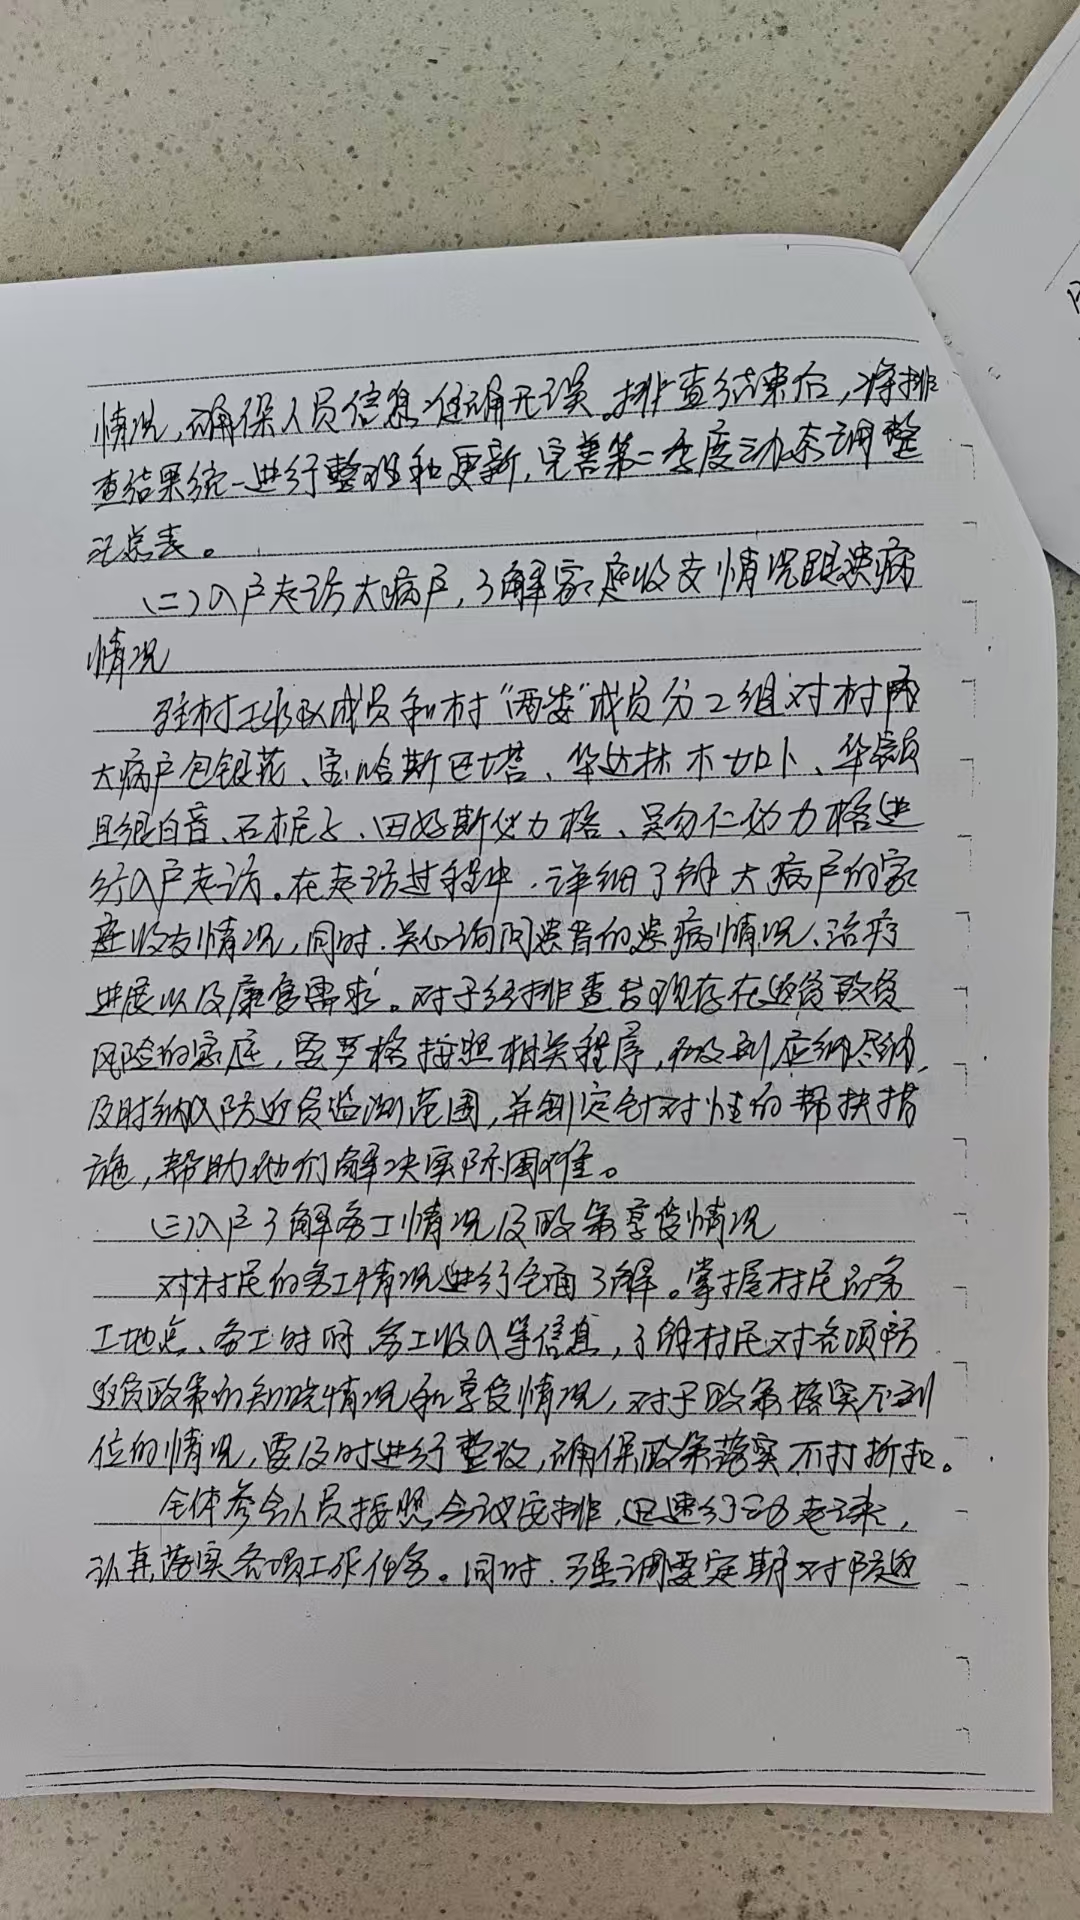 情况,确保人员信息准确无误。排查结束后,将排
查结果统一进行整理和更新,完善第一季度动态调整
汇总表。
(二)入户走访大病户,了解家庭收支情况跟患病
情况
驻村工作队成员和村“两委”成员分2组对村内
大病户包银花、宝哈斯巴塔、华达林木如卜、华
白音、石桩子、田好斯仗力格、吴勿仁仗力格进
行入户走访。在走访过程中,详细了解大病户的家
庭收支情况,同时,关心询问患者的患病情况、治疗
进展以及康复需求。对于经排查发现存在返贫致贫
风险的家庭,要严格按照相关程序,做到应纳尽纳,
及时纳入防返贫监测范围,并制定针对性的帮扶措
施,帮助他们解决实际困难。
(三)入户了解务工情况及政策享受情况
对村民的务工情况进行全面了解。掌握村民的务
工地点、务工时间、务工收入等信息,了解村民对各项防
返贫政策的知晓情况和享受情况,对于政策落实不到
位的情况,要及时进行整改,确保政策落实不打折扣。
全体参会人员按照会议安排,迅速行动起来,
认真落实各项工作任务。同时,强调要定期对防返